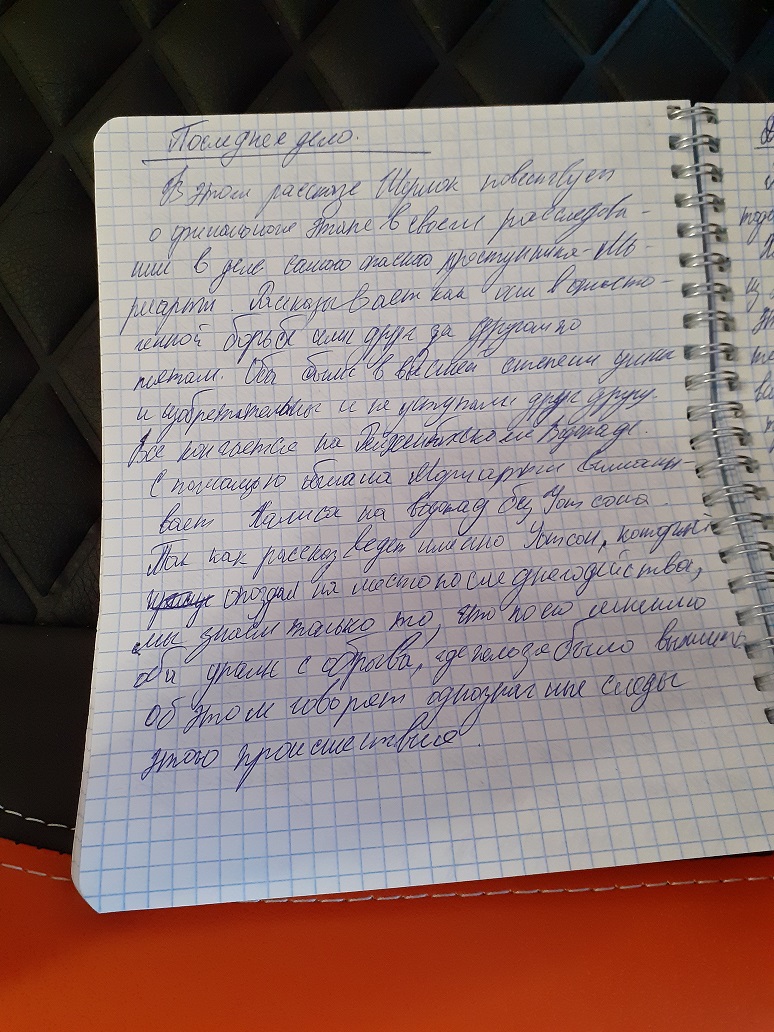 Последнее дело.
В этом рассказе Шерлок повествует
о финальном этапе в своем расследова-
нии в деле самого опасного преступника - Мо-
риарти. Рассказывает как они в ожесто-
ченной борьбе шли друг за другом по
пятам. Оба были в высшей степени умны
и изобретательны и не уступали друг другу.
Все кончается на Рейхенбахском Водопаде.
С помощью обмана Мориарти выманы-
вает Холмса на водопад без Уотсона.
Так как рассказ ведет именно Уотсон, который
опоздал на место последнего действа,
мы знаем только то, что по его мнению
оба упали с обрыва, где нельзя было выжить
об этом говорят однозначные следы
этого происшествия.